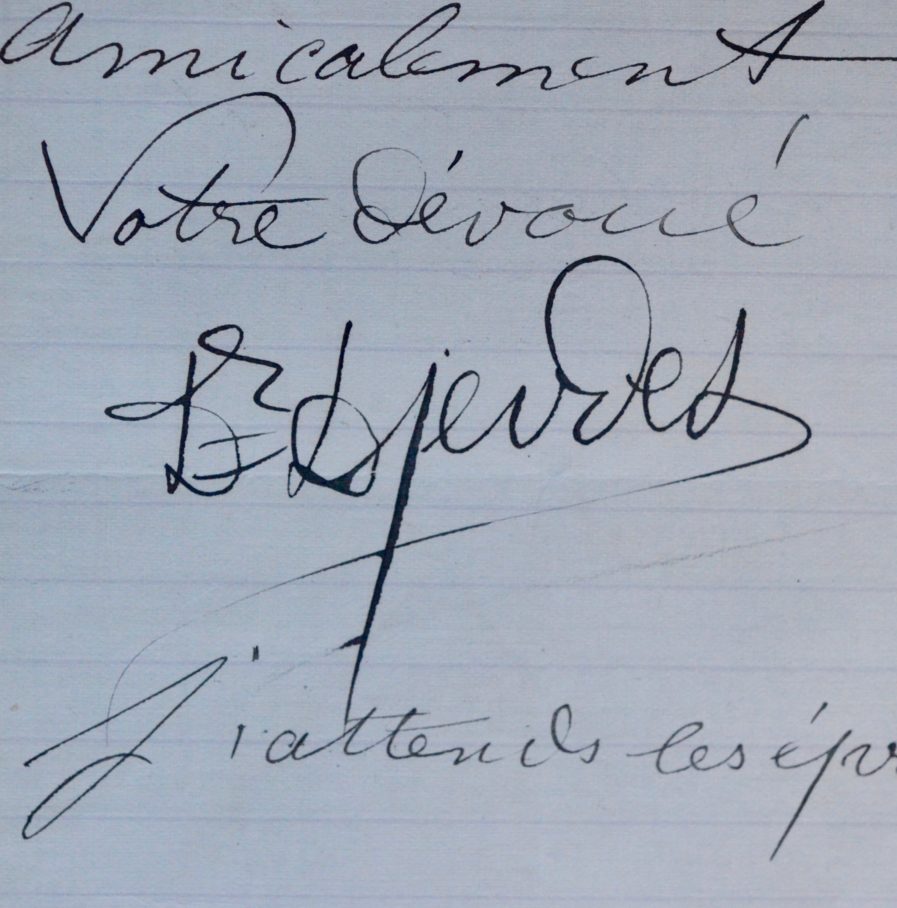 amicalement
Votre dévoué
Dr
J'attends les épr